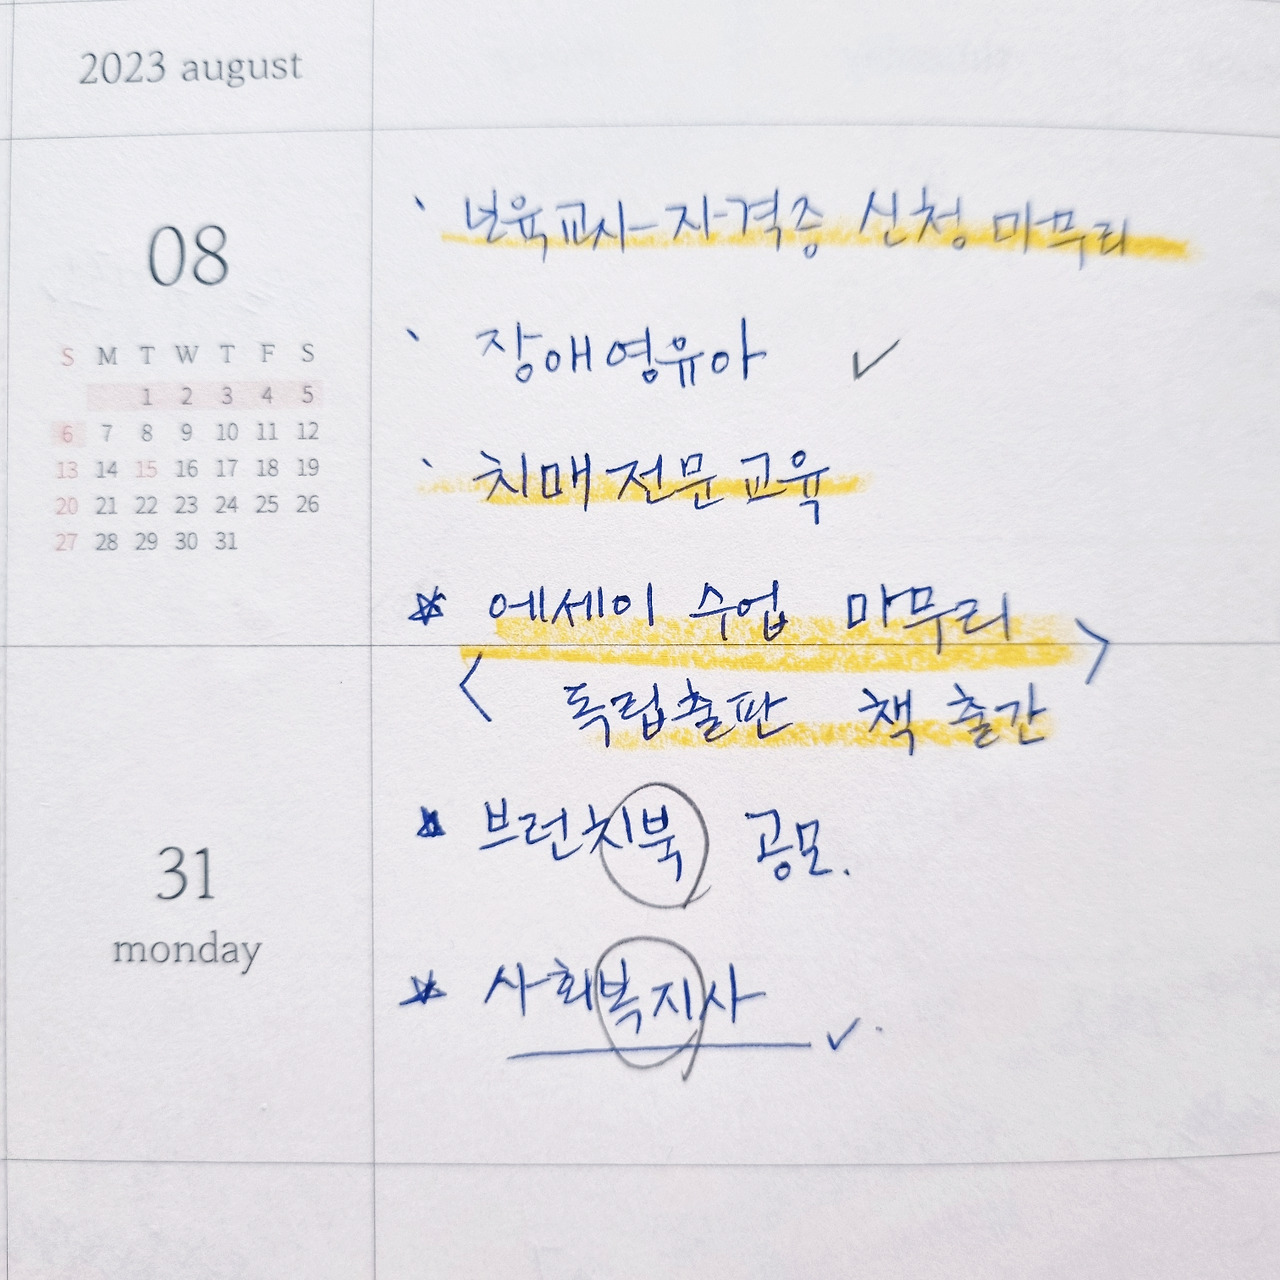 2023 august
08
S M T W T F S
1 2 3 4 5
6 7 8 9 10 11 12
13 14 15 16 17 18 19
20 21 22 23 24 25 26
27 28 29 30 31
보육교사 자격증 신청 마무리
장애영유아 ✓
치매전문교육
에세이 수업 마무리
< 독립출판 책 출간 >
브런치북 공모.
31
monday
사회복지사 ✓.